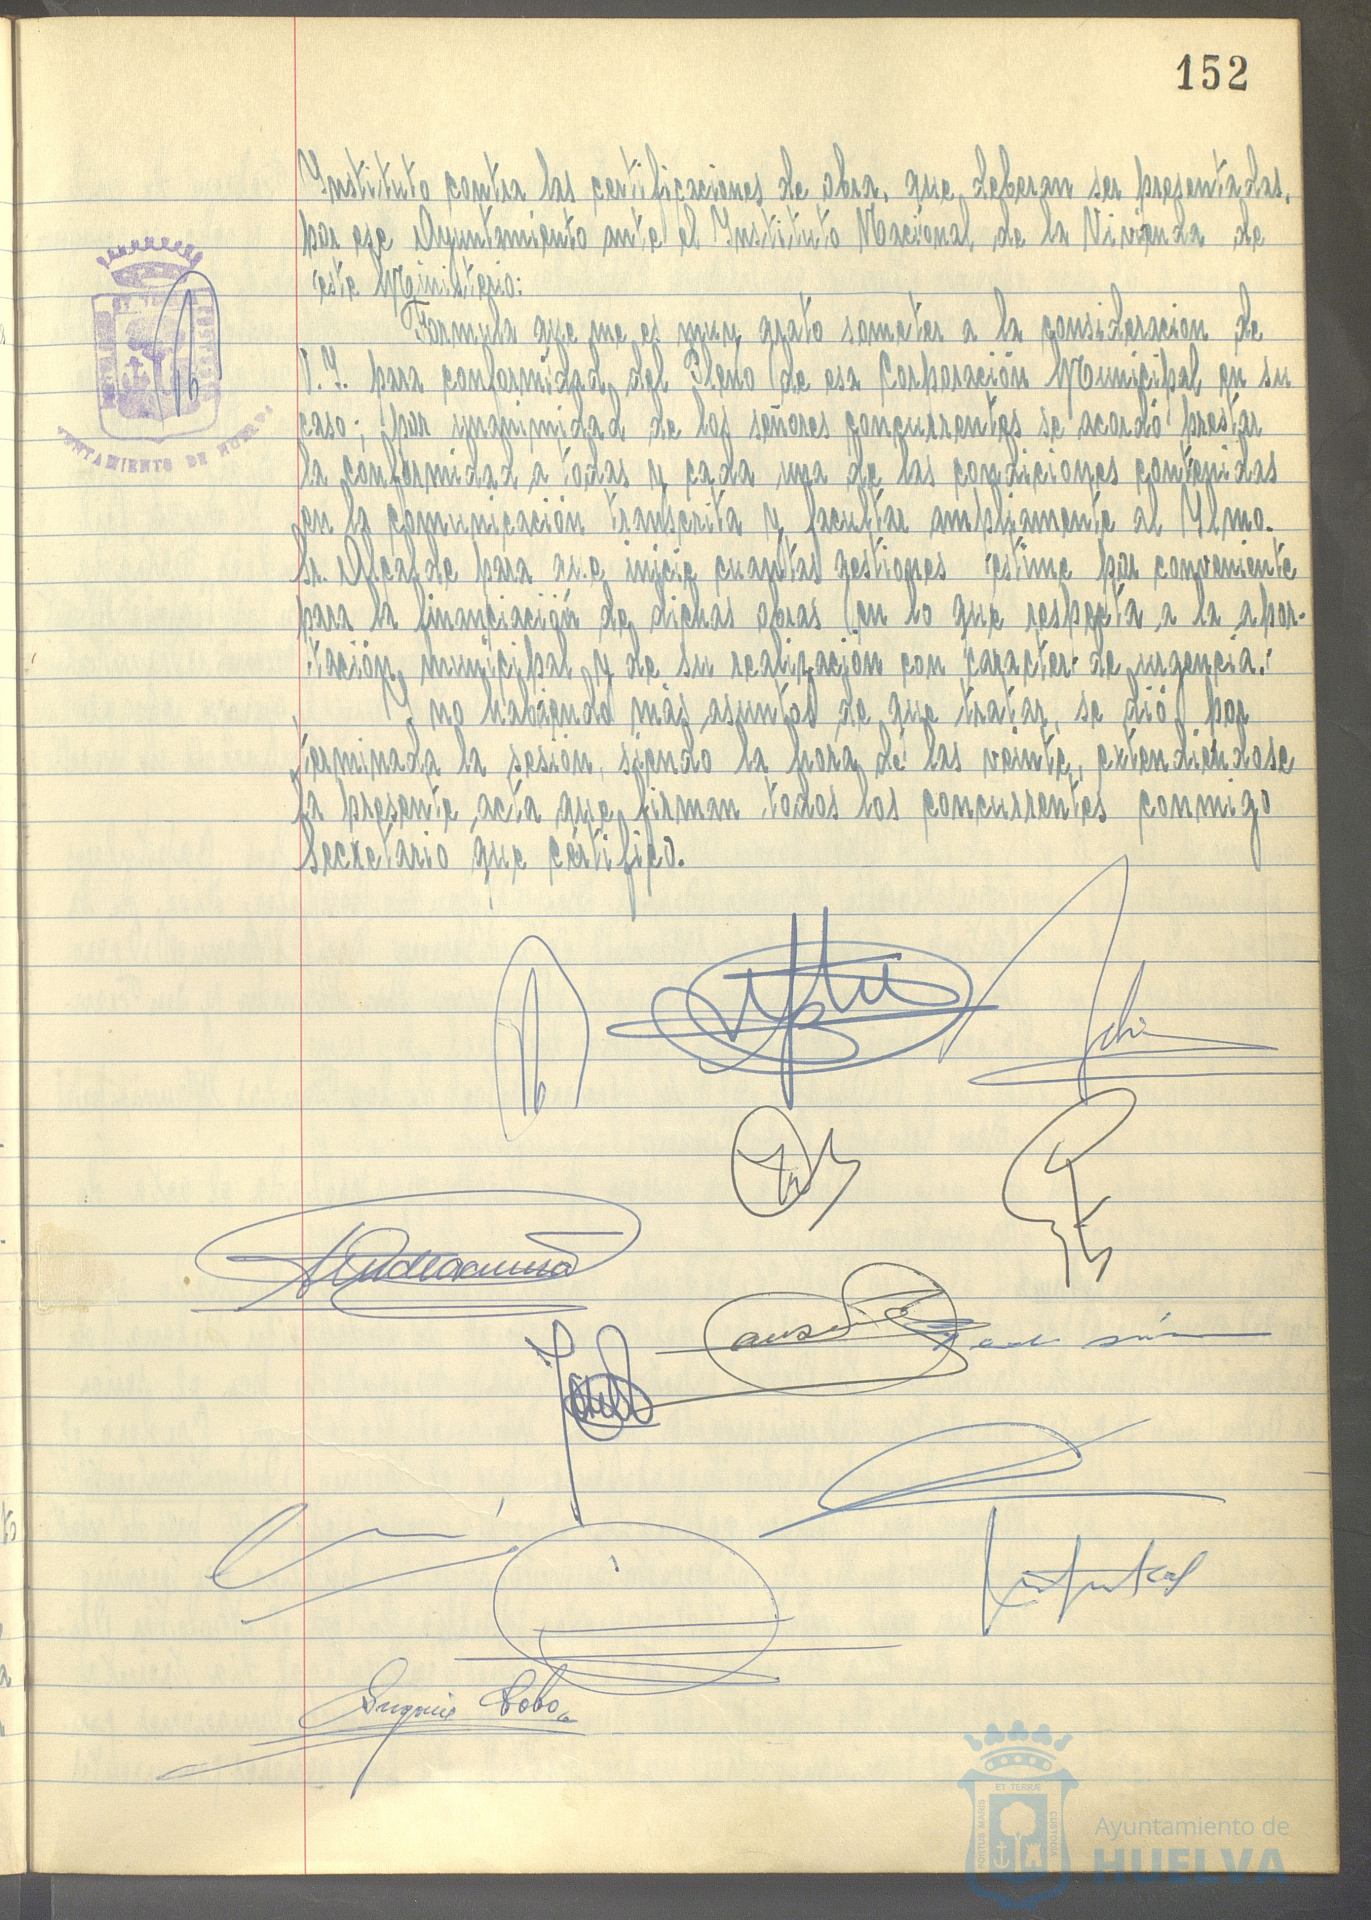 152
Instituto contra las certificaciones de obra, que deberan ser presentadas,
por ese Ayuntamiento ante el Instituto Nacional de la Vivienda de
este Ministerio:
Formula que me es muy grato someter a la consideracion de
V.I. para conformidad del Pleno de esa Corporación Municipal, en su
caso; por unanimidad de los señores concurrentes se acordó prestar
la conformidad a todas y cada una de las condiciones contenidas
en la comunicación transcrita y facultar ampliamente al Ylmo.
Sr. Alcalde para que inicie cuantas gestiones estime por conveniente
para la financiación de dichas obras en lo que respecta a la apor-
tación municipal y de su realización con caracter de urgencia.
Y no habiendo más asuntos de que tratar, se dió por
terminada la sesión, siendo la hora de las veinte, extendiendose
la presente acta que firman todos los concurrentes conmigo
Secretario que certifico.
Eugenio Cobo
AYUNTAMIENTO DE HUELVA
PORTUS MARIS ET TERRÆ CUSTODIA
Ayuntamiento de
HUELVA